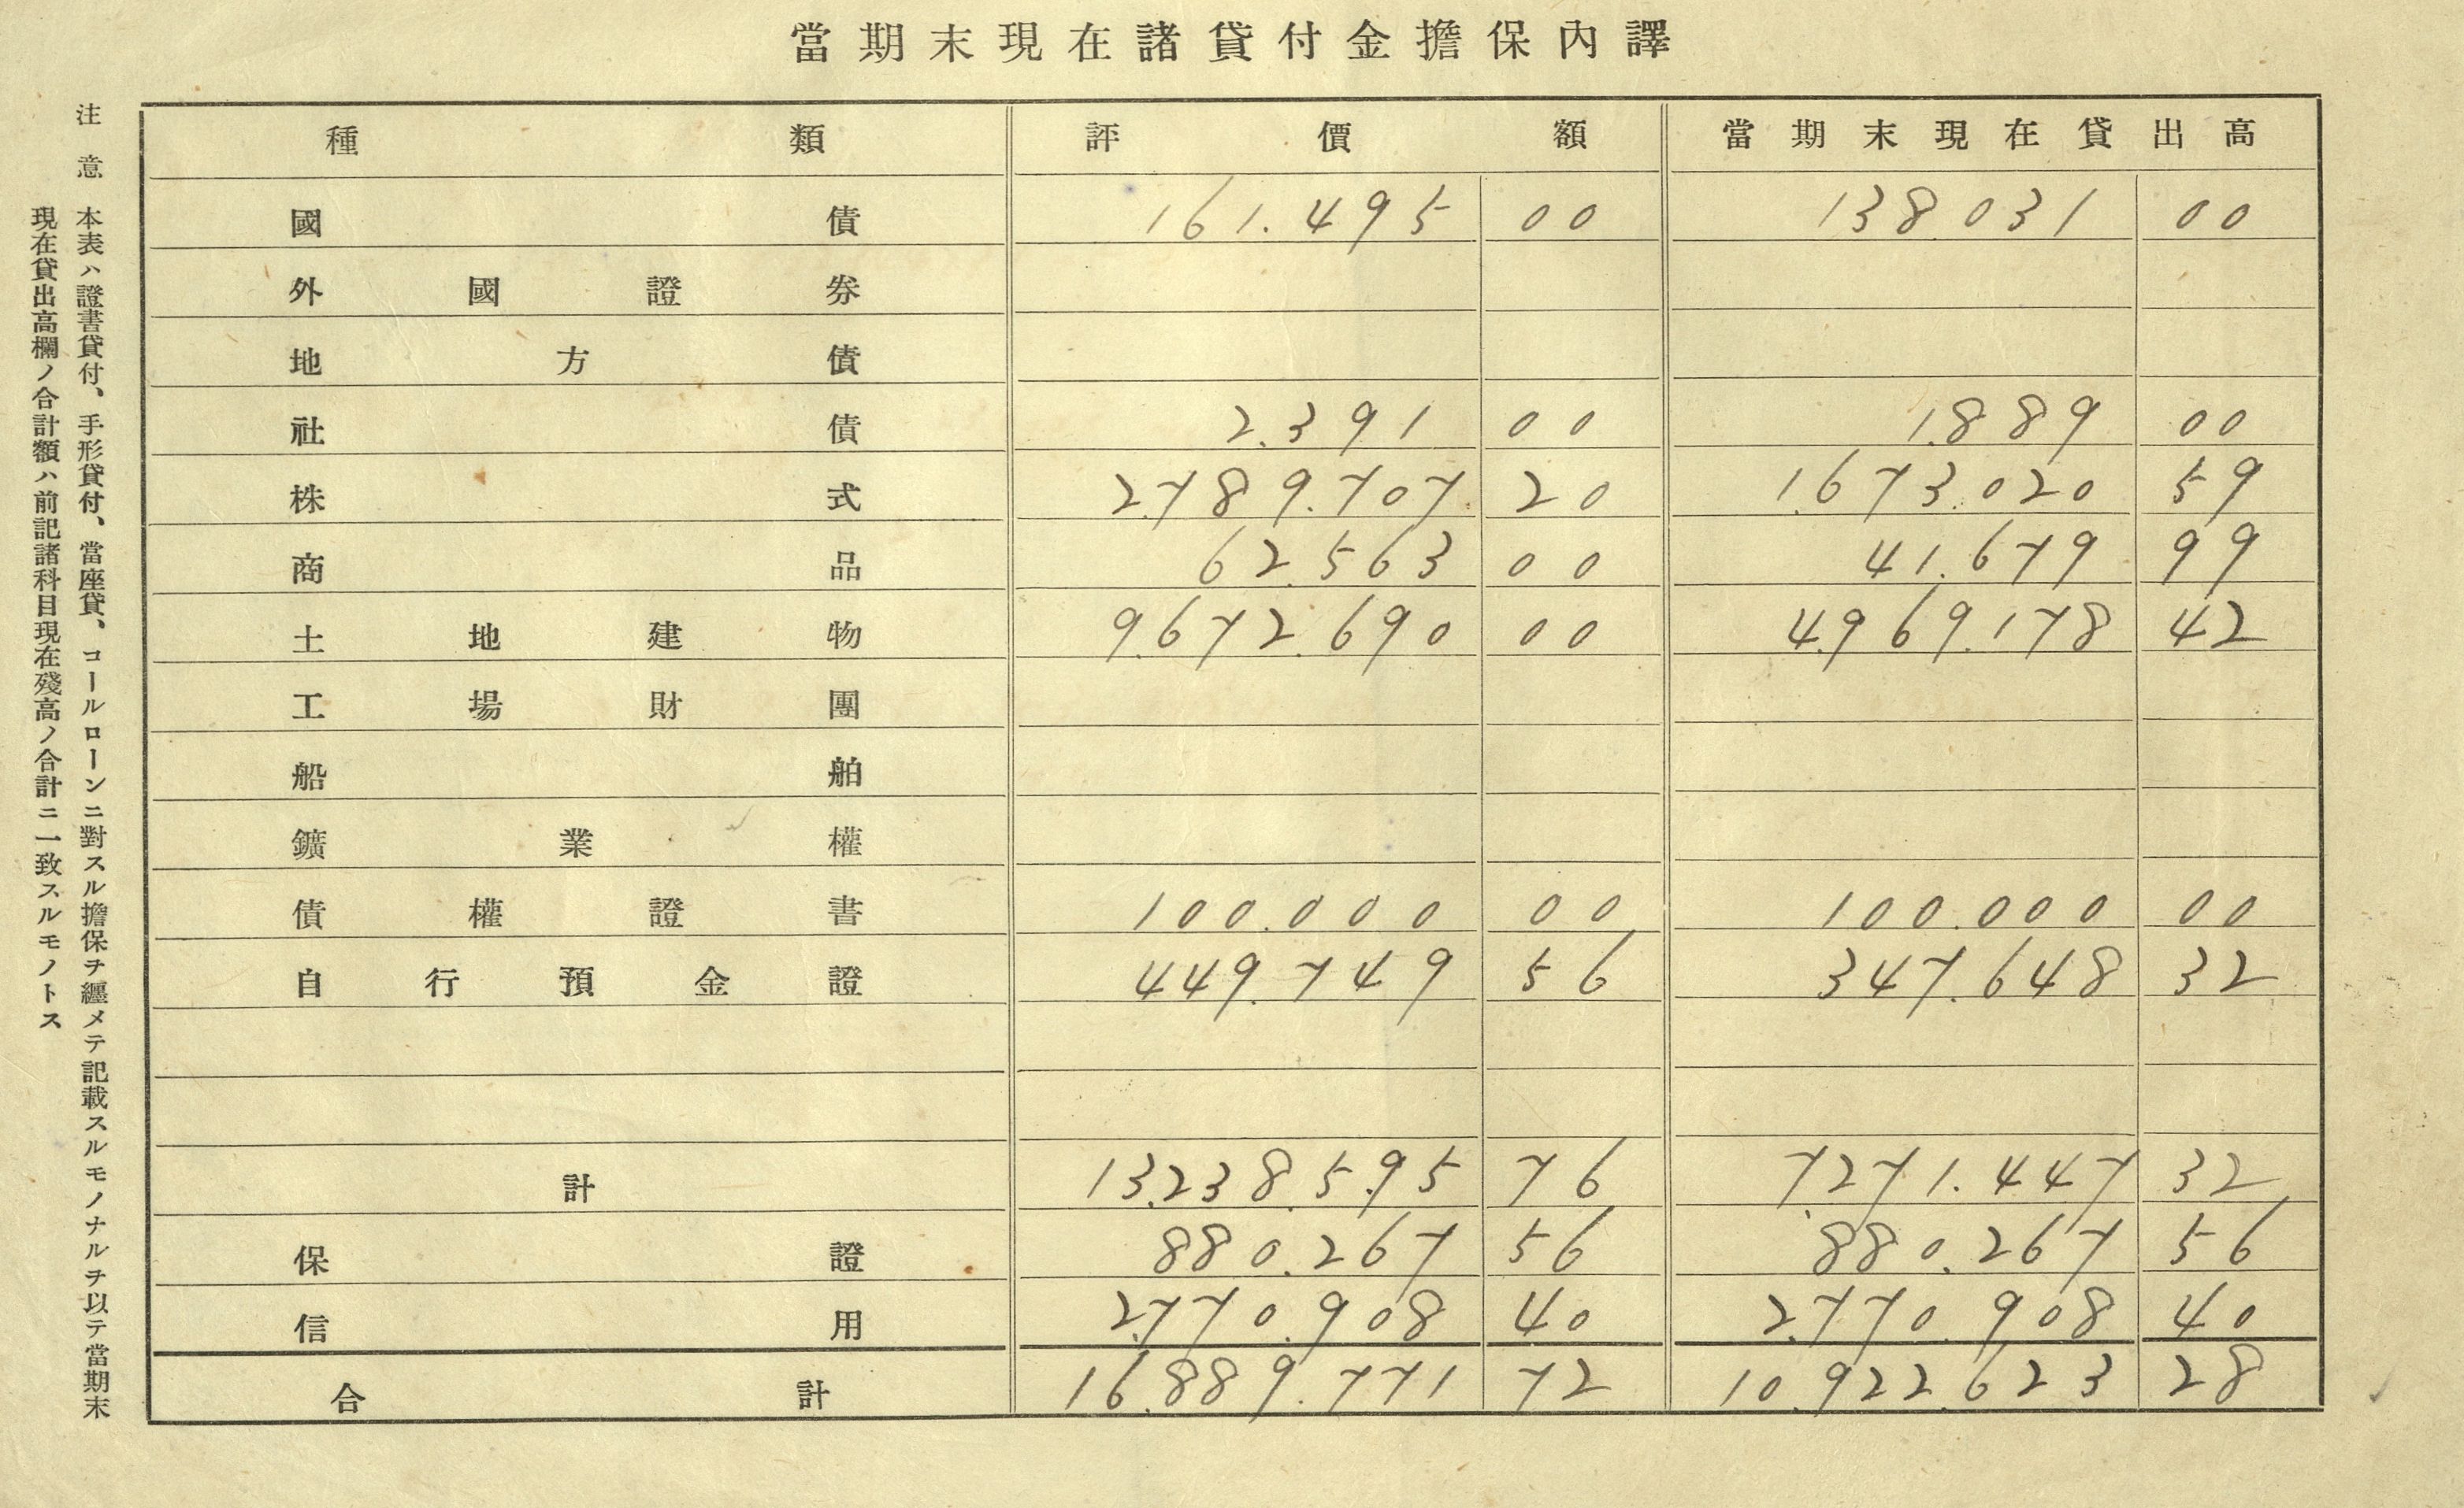 當期末現在諸貸付金擔保内譯
種類 評價額 當期末現在貸出高
國債 161.495 00 138.031 00
外國證券
地方債
社債 2.391 00 1.889 00
株式 2.789.707 20 1.673.020 59
商品 62.563 00 41.679 99
土地建物 9.672.690 00 4.969.178 42
工場財團
船舶
鑛業權
債權證書 100.000 00 100.000 00
自行預金證 449.749 56 347.648 32
計 13.238.595 76 7.271.447 32
保證 880.267 56 880.267 56
信用 2.770.908 40 2.770.908 40
合計 16.889.771 72 10.922.623 28
注意 本表ハ證書貸付、手形貸付、當座貸、コールローンニ對スル擔保ヲ纒メテ記載スルモノナルヲ以テ當期末
現在貸出高欄ノ合計額ハ前記諸科目現在殘高ノ合計ニ一致スルモノトス